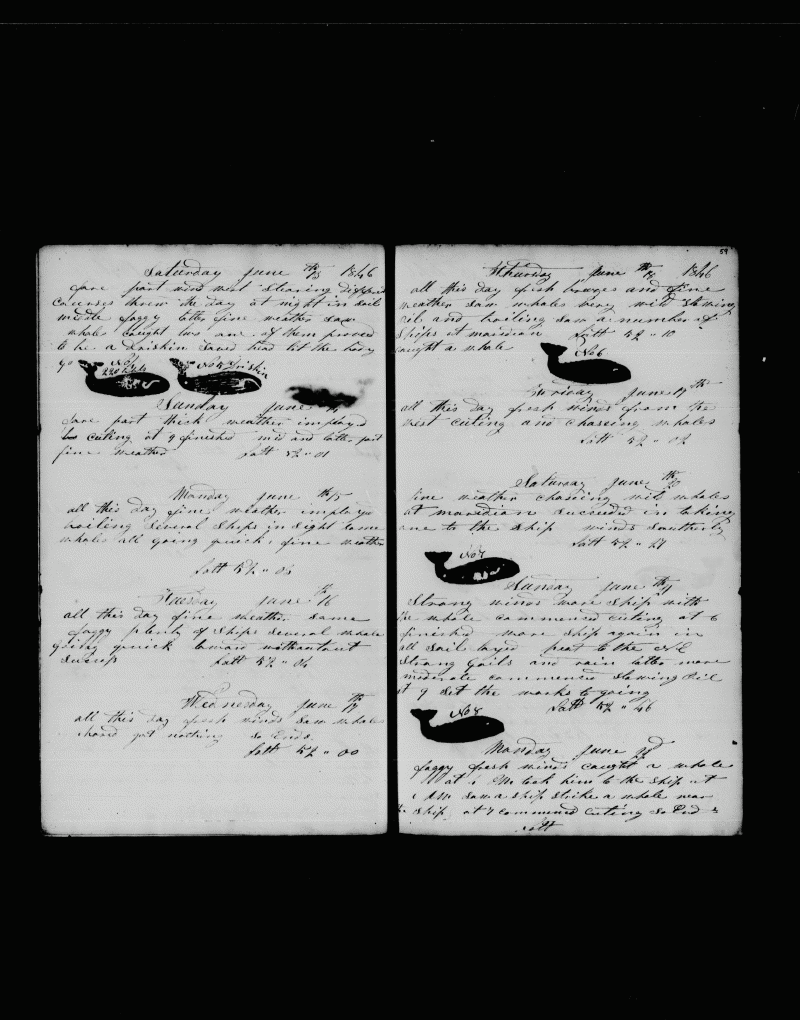 Saturday June 13th 1846
fore part wind west Stearing Different
Courses threw the day at night in sail
midle foggy latter fine weather saw
whales caught two one of them proved
to be a Driskin Saved head let the body
go
No 4
No 5 Driskin
Sunday June 14
fore part thick weather imployed
in cuting at 9 finished mid and latter part
fine weather Latt 52 " 01
Monday June 15th
all this day fine weather imployed
boiling Several Ships in Sight Some
whales all going quick fine weather
Latt 52 " 04
Tuesday June 16th
all this day fine weather some
foggy plenty of Ships Several whale
going quick toward without
Latt 52 " 04
Wednesday June 17th
all this day fresh winds Saw whales
got nothing So Ends
Latt 52 " 00
59
Thursday June 18th 1846
all this day fresh breeses and fine
weather Saw whales very wild Stowing
oil and boiling Saw a number of
Ships at maridian Latt 52 " 10
caught a whale
No 6
Friday June 19th
all this day fresh winds from the
west cuting and chaseing whales
Latt 52 " 02
Saturday June 20th
fine weather chasing wild whales
at maridian succeeded in taking
one to the Ship winds Southerly
Latt 52 " 27
No 7
Sunday June 21th
Strong winds wore Ship with
the whale commenced cuting at 6
finished wore Ship again in
all Sail layed to the NE
Strong Gails and rain latter more
moderate commenced Stowing Oil
at 9 Set the works to going
Latt 52 " 46
No 8
Monday June 22
foggy fresh winds caught a whale
at PM took him to the Ship at
AM Saw a Ship Strike a whale wore
the Ship at 7 commenced cuting So End s
Latt